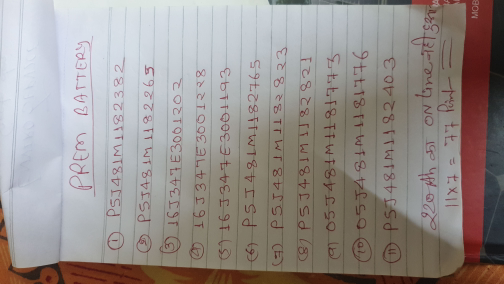 PREM BATTERY
① P5J481M1182382
② P5J481M1182265
③ 16J347E3001202
④ 16J347E3001228
(5) 16J347E3001193
(6) P5J481M1182765
(7) P5J481M1182823
(8) P5J481M1182821
(9) O5J481M1181773
⑩ O5J481M1181776
⑪ P5J481M1182403
220Ah का ON Line नही हुआ
11x7 = 77 Point
MOB